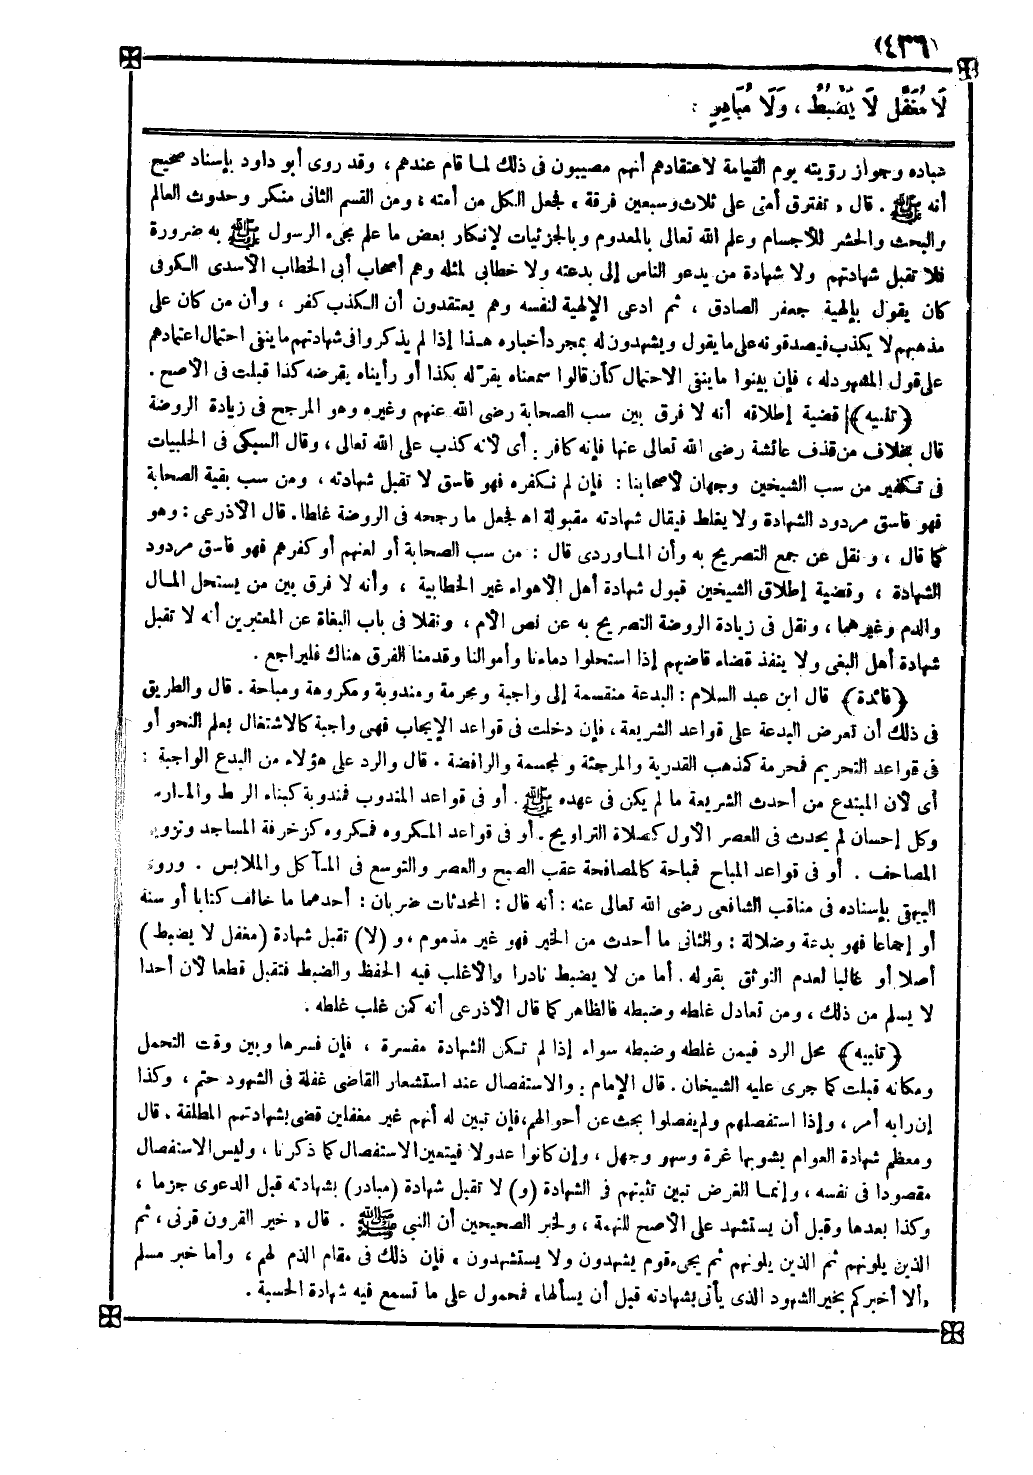 (٤٣٦)
لَا مُغَفَّلٍ لَا يَضْبِطُ ، وَلَا مُبَادِرٍ :
عباده وجواز رؤيته يوم القيامة لاعتقادهم أنهم مصيبون فى ذلك لما قام عندهم ، وقد روى أبو داود بإسناد صحيح
أنه ﷺ . قال « تفترق أمتى على ثلاث وسبعين فرقة » فجعل الكل من أمته ، ومن القسم الثانى منكر وحدوث العالم
والبعث والحشر للأجسام وعلم الله تعالى بالمعدوم وبالجزئيات لإنكار بعض ما علم مجىء الرسول ﷺ به ضرورة
فلا تقبل شهادتهم ولا شهادة من يدعو الناس إلى بدعته ولا خطابى لمثله وهم أصحاب أبى الخطاب الأسدى الكوفى
كان يقول بإلهية جعفر الصادق ، ثم ادعى الإلهية لنفسه وهم يعتقدون أن الكذب كفر ، وأن من كان على
مذهبهم لا يكذب فيصدقونه على ما يقول ويشهدون له بمجرد أخباره هذا إذا لم يذكروا فى شهادتهم ما ينفى احتمال اعتمادهم
على قول المشهود له ، فإن بينوا ما ينفى الاحتمال كأن قالوا سمعناه يقر له بكذا أو رأيناه يقرضه كذا قبلت فى الأصح .
﴿تنبيه﴾ قضية إطلاقه أنه لا فرق بين سب الصحابة رضى الله عنهم وغيره وهو المرجح فى زيادة الروضة
قال بخلاف من قذف عائشة رضى الله تعالى عنها فإنه كافر : أى لأنه كذب على الله تعالى ، وقال السبكى فى الحلبيات
فى تكفير من سب الشيخين وجهان لأصحابنا : فإن لم نكفره فهو فاسق لا تقبل شهادته ، ومن سب بقية الصحابة
فهو فاسق مردود الشهادة ولا يغلط فيقال شهادته مقبولة اه فجعل ما رجحه فى الروضة غلطا . قال الأذرعى : وهو
كما قال ، ونقل عن جمع التصريح به وأن الماوردى قال : من سب الصحابة أو لعنهم أو كفرهم فهو فاسق مردود
الشهادة ، وقضية إطلاق الشيخين قبول شهادة أهل الأهواء غير الخطابية ، وأنه لا فرق بين من يستحل المال
والدم وغيرهما ، ونقل فى زيادة الروضة التصريح به عن نص الأم ، ونقلا فى باب البغاة عن المعتبرين أنه لا تقبل
شهادة أهل البغى ولا ينفذ قضاء قاضيهم إذا استحلوا دماءنا وأموالنا وقدمنا الفرق هناك فليراجع .
﴿فائدة﴾ قال ابن عبد السلام : البدعة منقسمة إلى واجبة ومحرمة ومندوبة ومكروهة ومباحة . قال والطريق
فى ذلك أن تعرض البدعة على قواعد الشريعة ، فإن دخلت فى قواعد الإيجاب فهى واجبة كالاشتغال بعلم النحو أو
فى قواعد التحريم فمحرمة كمذهب القدرية والمرجئة والمجسمة والرافضة . قال والرد على هؤلاء من البدع الواجبة :
أى لأن المبتدع من أحدث الشريعة ما لم يكن فى عهده ﷺ . أو فى قواعد المندوب فمندوبة كبناء الربط والمدارس
وكل إحسان لم يحدث فى العصر الأول كصلاة التراويح . أو فى قواعد المكروه فمكروه كزخرفة المساجد وتزويق
المصاحف . أو فى قواعد المباح فمباحة كالمصافحة عقب الصبح والعصر والتوسع فى المآكل والملابس . وروى
البيهقى بإسناده فى مناقب الشافعى رضى الله تعالى عنه : أنه قال : المحدثات ضربان : أحدهما ما خالف كتابا أو سنة
أو إجماعا فهو بدعة وضلالة : والثانى ما أحدث من الخير فهو غير مذموم ، و (لا) تقبل شهادة (مغفل لا يضبط)
أصلا أو غالبا لعدم التوثق بقوله . أما من لا يضبط نادرا والأغلب فيه الحفظ والضبط فتقبل قطعا لأن أحدا
لا يسلم من ذلك ، ومن تعادل غلطه وضبطه فالظاهر كما قال الأذرعى أنه كمن غلب غلطه .
﴿تنبيه﴾ محل الرد فيمن غلطه وضبطه سواء إذا لم تكن الشهادة مفسرة ، فإن فسرها وبين وقت التحمل
ومكانه قبلت كما جرى عليه الشيخان . قال الإمام : والاستفصال عند استشعار القاضى غفلة فى الشهود حتم ، وكذا
إن رابه أمر ، وإذا استفصلهم ولم يفصلوا بحث عن أحوالهم ، فإن تبين له أنهم غير مغفلين قضى بشهادتهم المطلقة . قال
ومعظم شهادة العوام يشوبها غرة وسهو وجهل ، وإن كانوا عدولا فيتعين الاستفصال كما ذكرنا ، وليس الاستفصال
مقصودا فى نفسه ، وإنما الغرض تبين تثبتهم فى الشهادة (و) لا تقبل شهادة (مبادر) بشهادته قبل الدعوى جزما ،
وكذا بعدها وقبل أن يستشهد على الأصح للتهمة ، ولخبر الصحيحين أن النبى ﷺ . قال « خير القرون قرنى ، ثم
الذين يلونهم ثم الذين يلونهم ثم يجىء قوم يشهدون ولا يستشهدون » فإن ذلك فى مقام الذم لهم ، وأما خبر مسلم
« ألا أخبركم بخير الشهود الذى يأتى بشهادته قبل أن يسألها » فمحمول على ما تسمع فيه شهادة الحسبة .